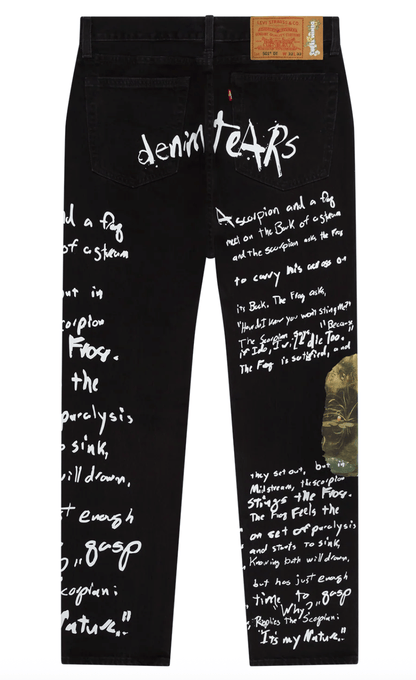 LEVI STRAUSS & CO.
denim teARs
d a frog
of a stream
ut in
corpion
Frog.
the
paralysis
o sink,
will drown,
t enough
gasp
corpian:
Nature."
A scorpion and a frog
meet on the Bank of a stream
and the scorpian asks the frog
to carry him across on
its Back. The Frog asks,
"How do I know you wont sting me?"
The Scorpian says, "Because
if I do, I will die Too."
The Frog is satisfied, and
they set out, but in
Midstream, the scorpion
Stings the Frog.
The Frog Feels the
on set of paralysis
and starts to sink,
Knowing both will drown,
but has just enough
time to gasp
"Why?"
Replies the Scorpian:
"It's my Nature."